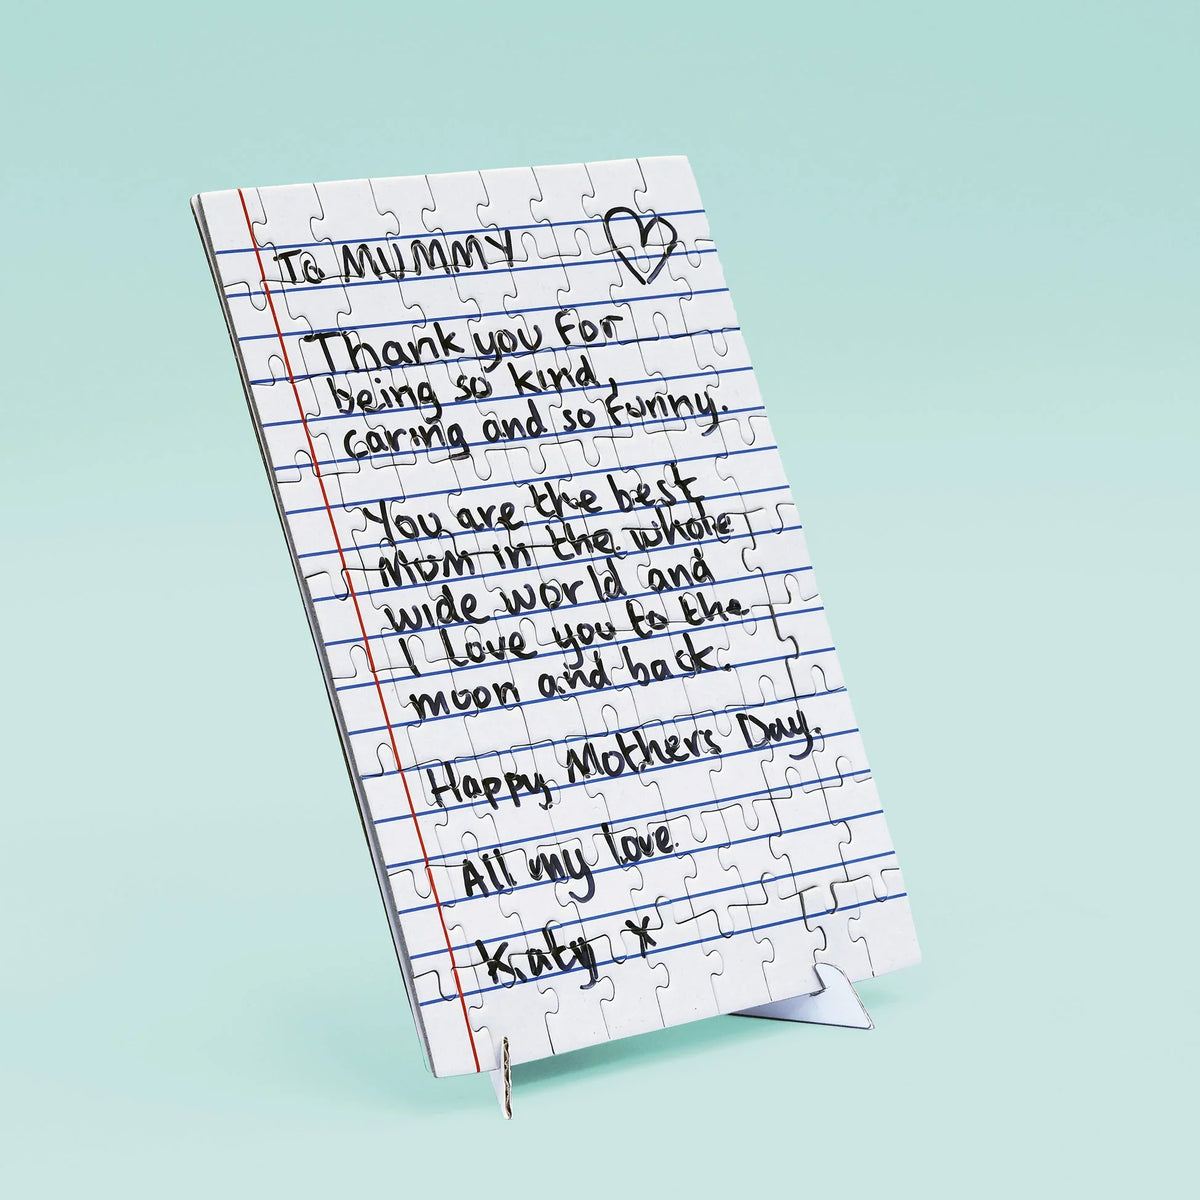 To MUMMY
Thank you for
being so kind,
caring and so funny.
You are the best
Mum in the whole
wide world and
I love you to the
moon and back.
Happy Mothers Day.
All my love.
Katy x